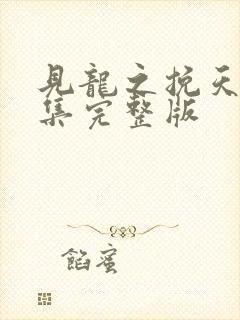 見龍之挽天
集完整版
餡蜜